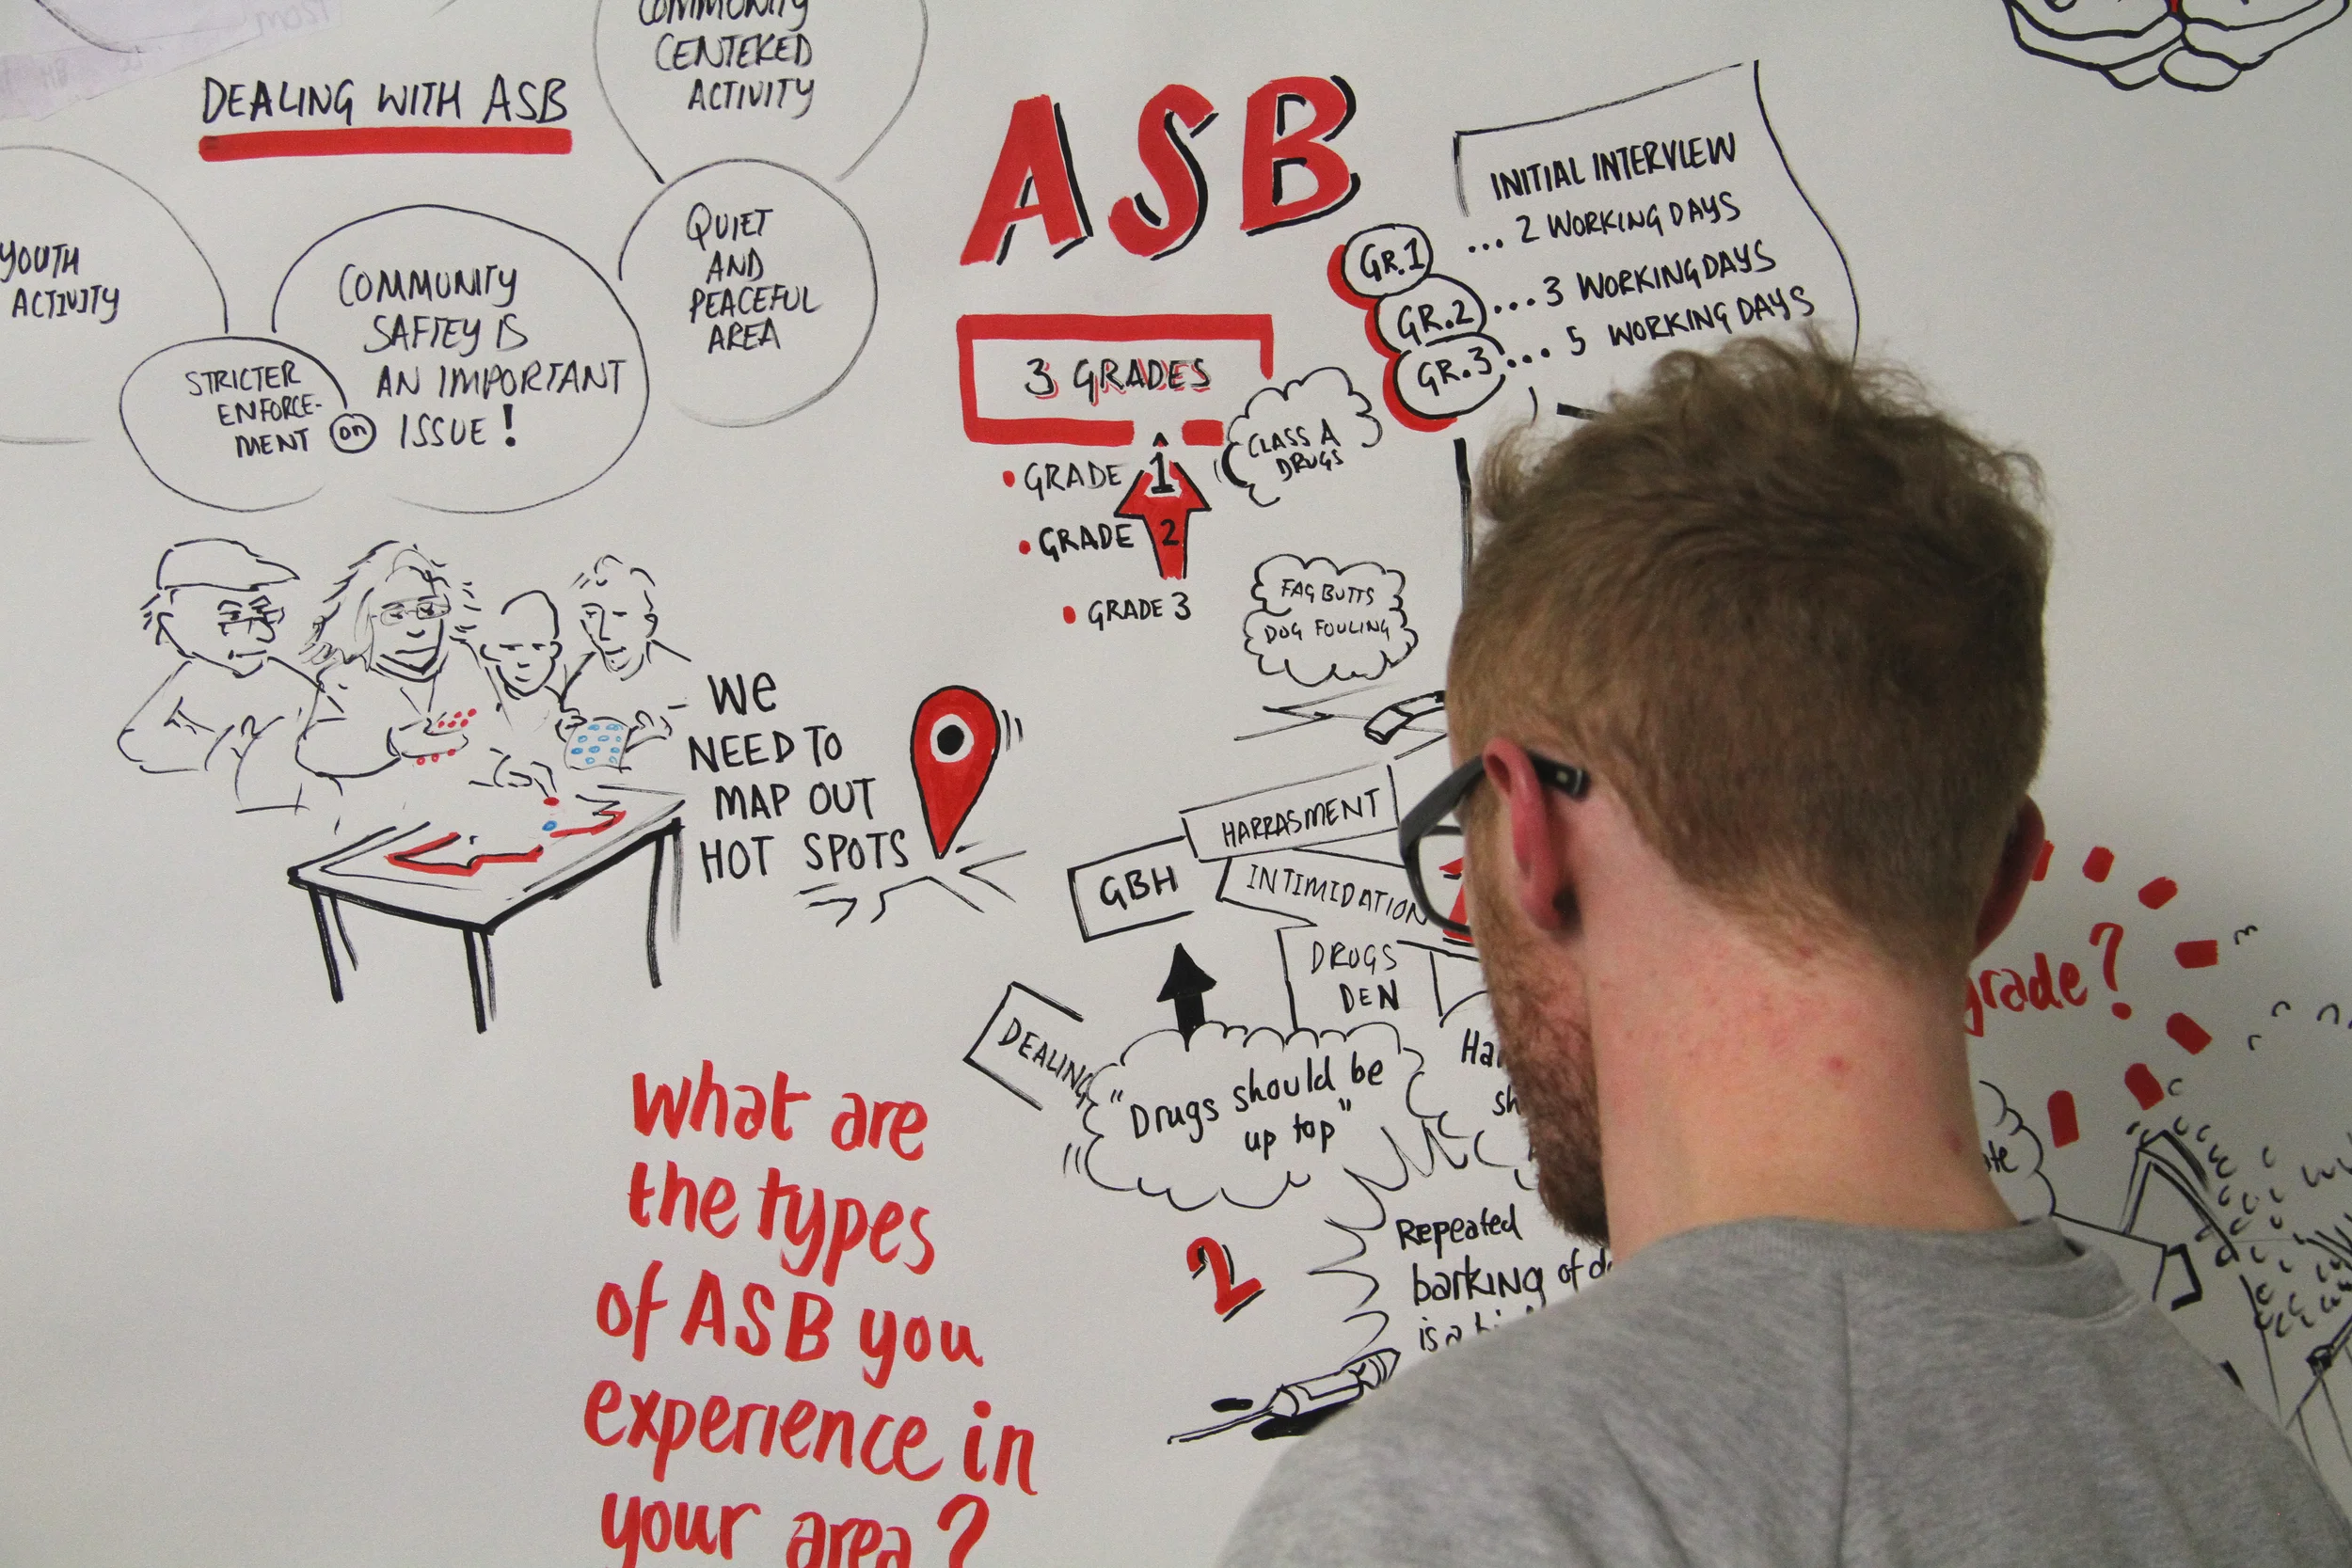 COMMUNITY
CENTERED
ACTIVITY
DEALING WITH ASB
YOUTH
ACTIVITY
STRICTER
ENFORCE-
MENT
on
COMMUNITY
SAFTEY IS
AN IMPORTANT
ISSUE!
QUIET
AND
PEACEFUL
AREA
WE
NEED TO
MAP OUT
HOT SPOTS
What are
the types
of ASB you
experience in
your area?
ASB
3 GRADES
• GRADE 1
• GRADE 2
• GRADE 3
CLASS A
DRUGS
FAG BUTTS
DOG FOULING
INITIAL INTERVIEW
GR.1 ... 2 WORKING DAYS
GR.2 ... 3 WORKING DAYS
GR.3 ... 5 WORKING DAYS
HARRASMENT
GBH
INTIMIDATION
DRUGS
DEN
DEALING
"Drugs should be
up top"
2
Repeated
barking of
is a
grade?